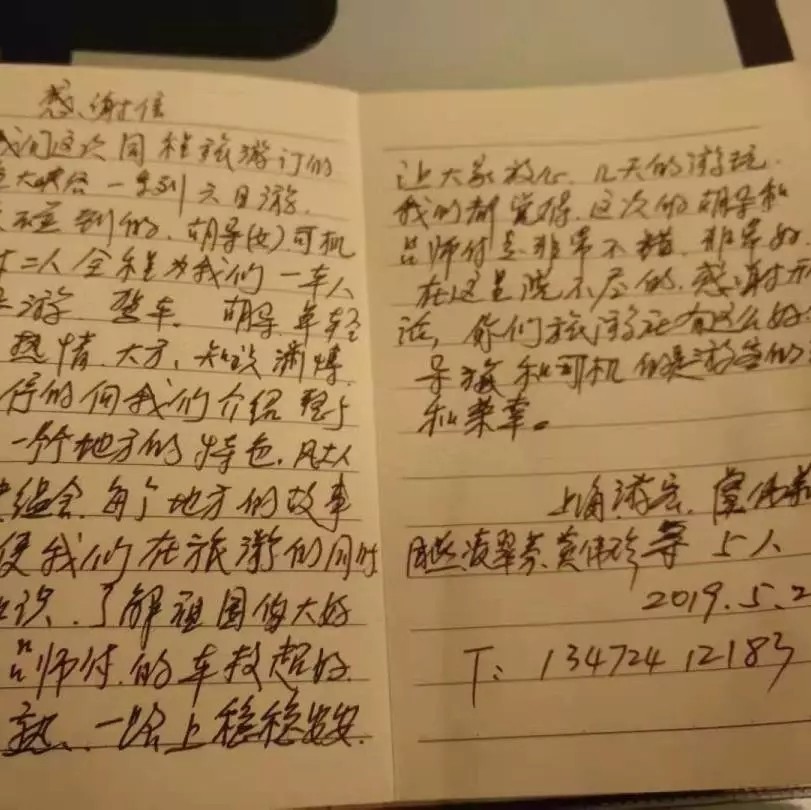 感谢信
我们这次同程旅游订的
大峡谷一号到六日游.
胡导(女).司机
二人全程为我们一车人
导游.驾车. 胡导.年轻
热情.大方、知识渊博.
停的向我们介绍
一个地方的特色.风土人
每个地方的故事
使我们在旅游的同时
了解祖国伟大好
吕师付.的车技超好.
熟、一路上稳稳安安.
让大家放心.几天的游玩.
我们都觉得.这次的胡导和
吕师付是非常不错.非常好.
在这是说不尽的.感谢
话,你们旅游社有这么好
导游和司机的是游客的
和荣幸。
上海游客.
翠芬.黄伟珍等5人
2019.5.2
T: 13472412183